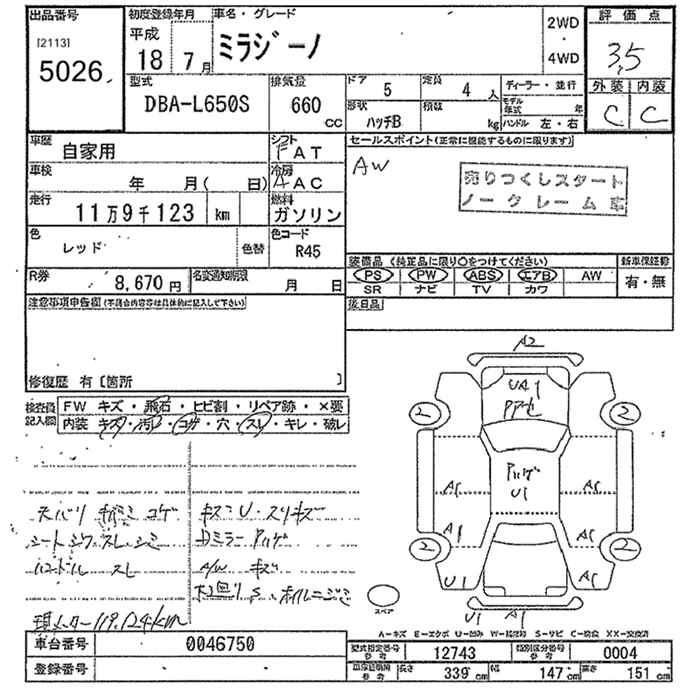 出品番号 初度登録年月 車名・グレード 2WD ・ 4WD 評価点
[2113] 5026 平成 18年 7月 ミラジーノ 3.5
型式 DBA-L650S 排気量 660 CC ドア 5 定員 4人 ディーラー・並行 外装 内装
形状 ハッチB 積数 kg モデル年式 年 ハンドル 左・右 C C
車歴 自家用 シフト FAT セールスポイント(正常に機能するものに限ります)
車検 年 月( 日) 冷房 AAC AW
売りつくしスタート
ノークレーム車
走行 11万9千123 km 燃料 ガソリン
色 レッド 色替 色コード R45
装備品 (純正品に限り○をつけてください) 新車保証書
R券 8,670円 名変通知期限 月 日 PS PW ABS エアB AW 有・無
SR ナビ TV カワ
注意事項申告欄(不具合内容等は具体的に記入して下さい) 後日品
修復歴 有〔箇所 〕
検査員記入欄 FW キズ・飛石・ヒビ割・リペア跡・×要
内装 キズ・汚れ・コゲ・穴・スレ・キレ・破レ
天バリ キバミ コゲ キズミU・スリキズ
シートシワ・スレ・シミ Dミラー Pハゲ
ハンドル スレ A/W キズ
下回りS、ホイルニジミ
現メーター119,124km
A2
UA1
Pアセ
2 2
Pハゲ
U1
A1 A1
A1 A1
2 2
U1 A1
U1 A1
スペア
A−キズ E−エクボ U−凹み W−補修跡 S−サビ C−腐食 XX−交換済
車台番号 0046750 型式指定番号 参考 12743 類別区分番号 参考 0004
登録番号 長さ 339 cm 幅 147 cm 高さ 151 cm